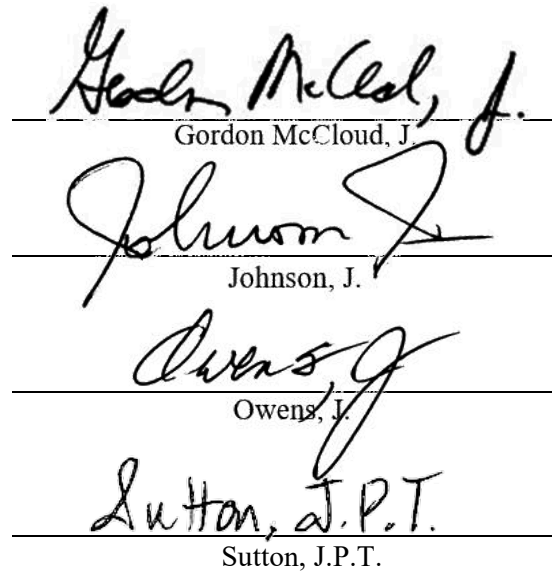 Gordon McCloud, J.
Gordon McCloud, J.
Johnson, J.
Johnson, J.
Owens, J.
Owens, J.
Sutton, J.P.T.
Sutton, J.P.T.